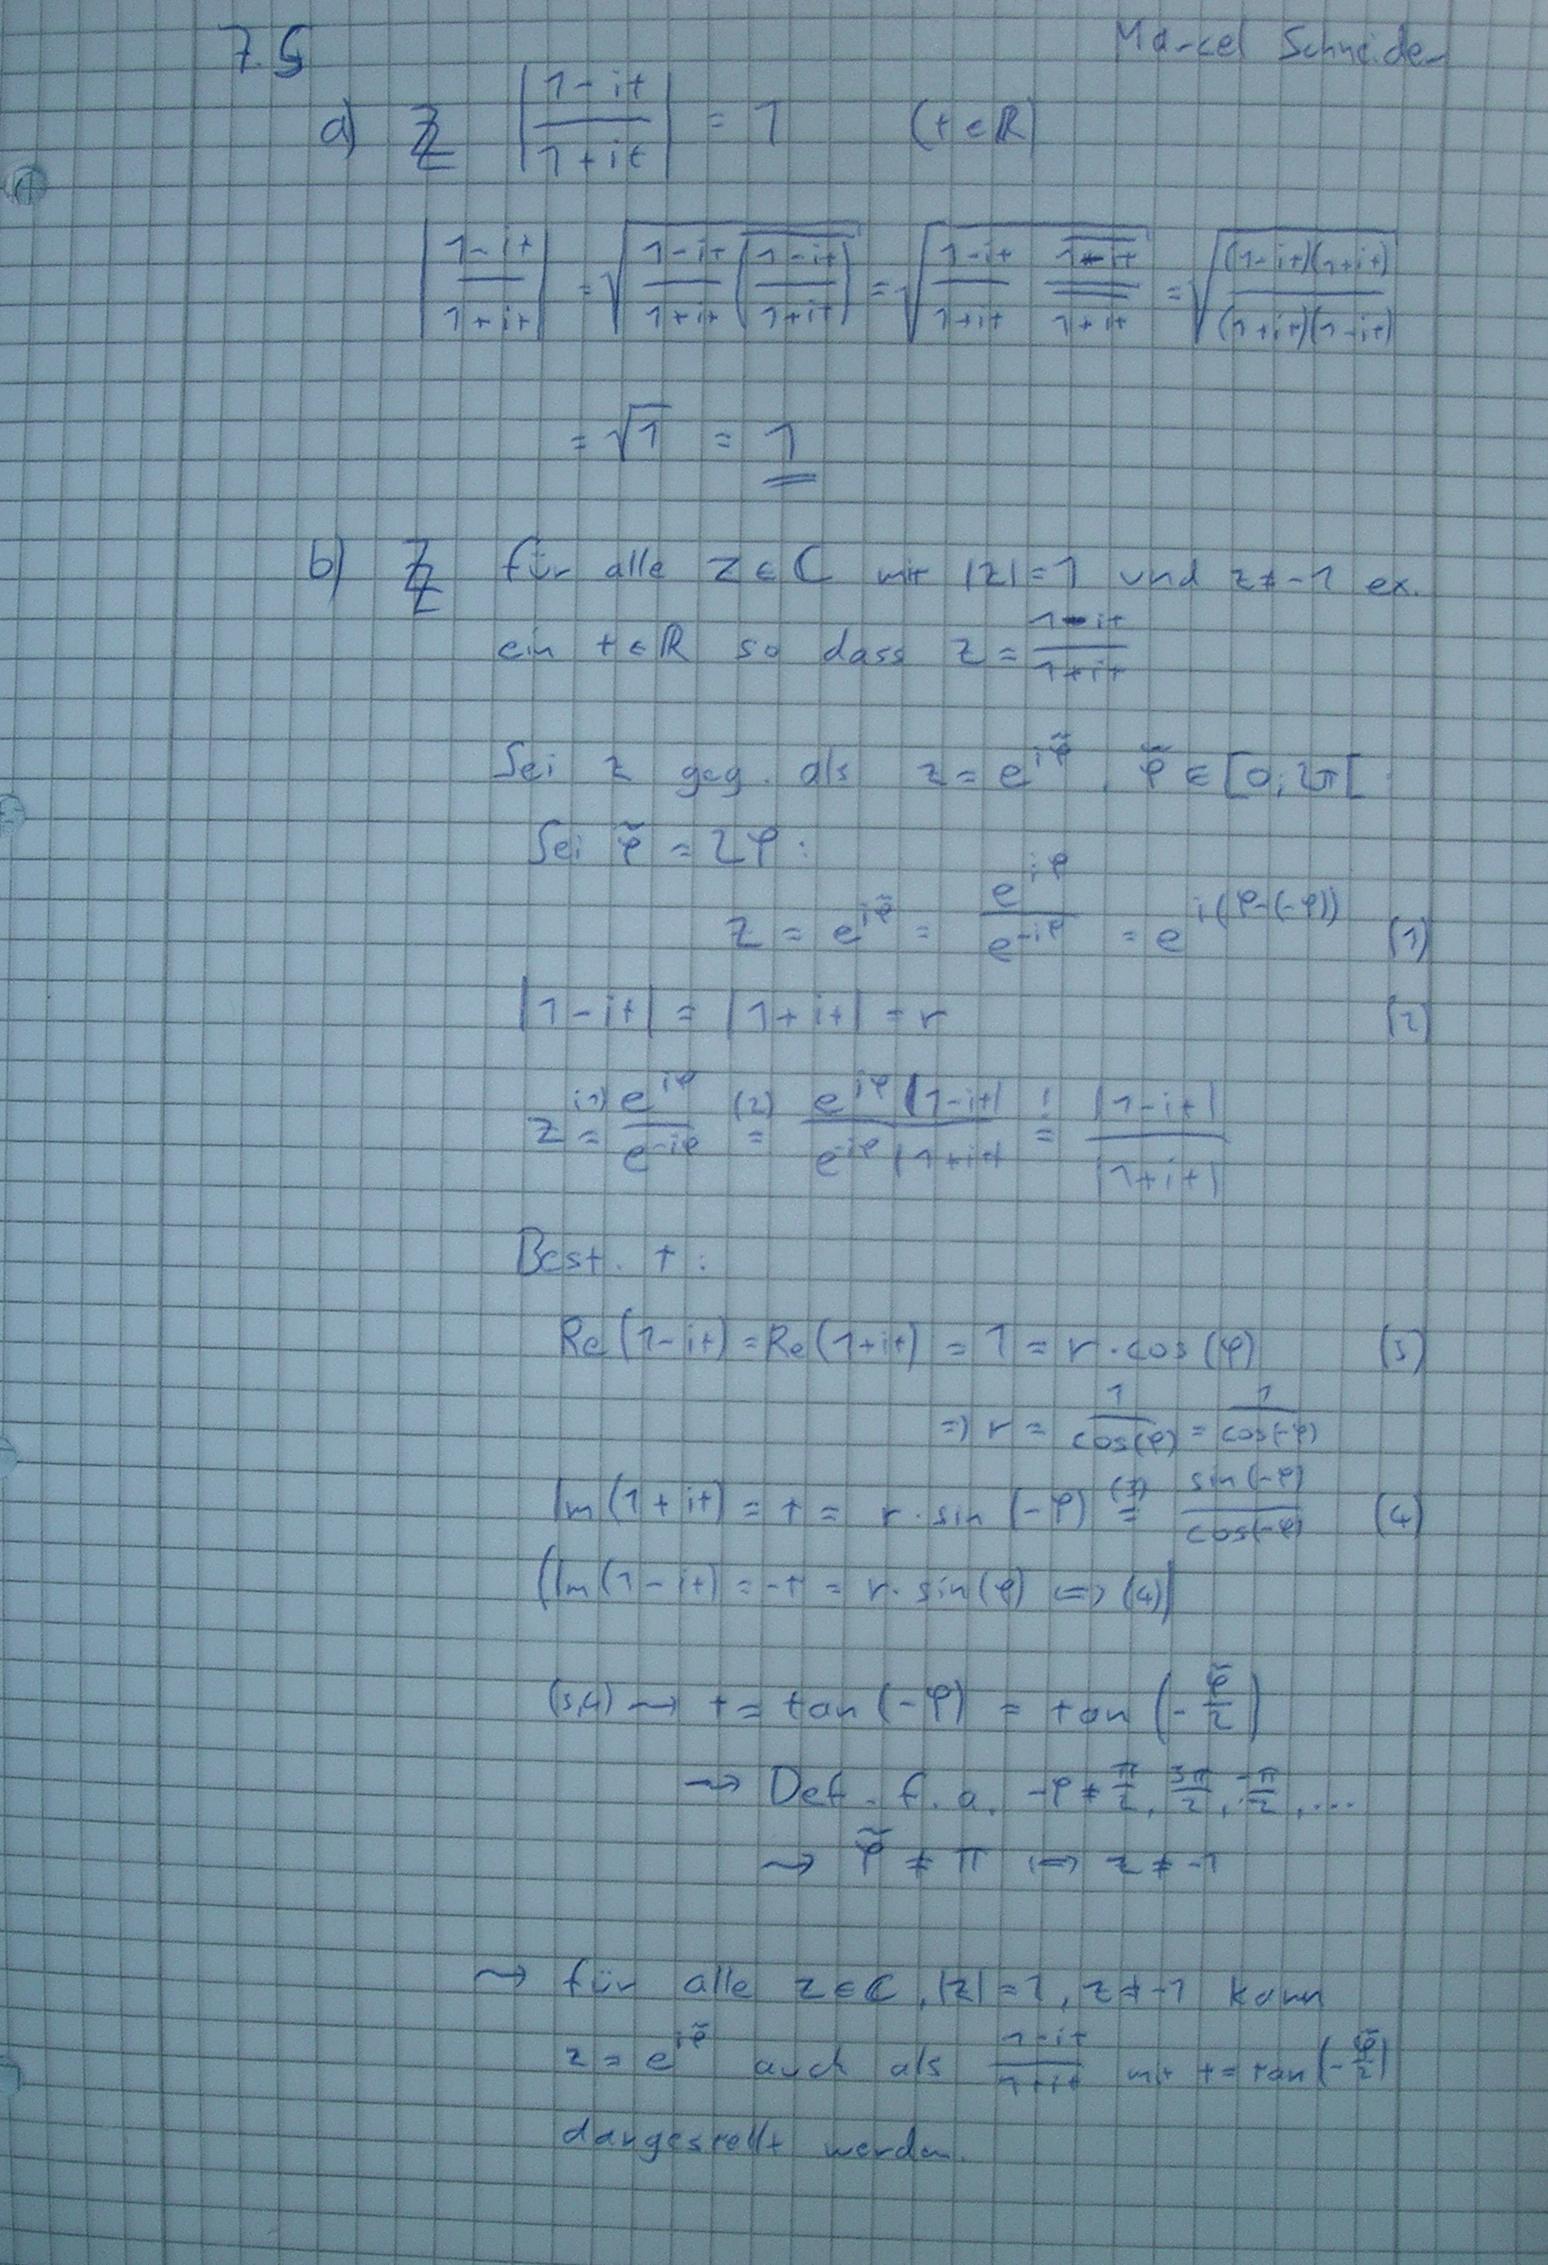 Marcel Schneider
7.5
a) ZZ |(1-it)/(1+it)| = 1 (t∈ℝ)
|(1-it)/(1+it)| = √((1-it)/(1+it) \overline{((1-it)/(1+it))}) = √((1-it)/(1+it) \overline{1-it}/\overline{1+it}) = √((1-it)(1+it)/((1+it)(1-it)))
= √1 = 1
b) ZZ für alle z∈ℂ mit |z|=1 und z≠-1 ex.
ein t∈ℝ so dass z = (1-it)/(1+it)
Sei z geg. als z = e^{iφ̃}, φ̃ ∈ [0; 2π[
Sei φ̃ = 2φ:
z = e^{iφ̃} = e^{iφ}/e^{-iφ} = e^{i(φ-(-φ))} (1)
|1-it| = |1+it| = r (2)
z =^{(1)} e^{iφ}/e^{-iφ} =^{(2)} e^{iφ}|1-it|/(e^{-iφ}|1+it|) =^{!} |1-it|/|1+it|
Best. t:
Re(1-it) = Re(1+it) = 1 = r·cos(φ) (3)
=> r = 1/cos(φ) = 1/cos(-φ)
Im(1+it) = t = r·sin(-φ) =^{(3)} sin(-φ)/cos(-φ) (4)
(Im(1-it) = -t = r·sin(φ) <=> (4))
(3,4) ⇝ t = tan(-φ) = tan(-φ̃/2)
⇝ Def. f. a. -φ ≠ π/2, 3π/2, -π/2, ...
⇝ φ̃ ≠ π <=> z ≠ -1
⇝ für alle z∈ℂ, |z|=1, z≠-1 kann
z = e^{iφ̃} auch als (1-it)/(1+it) mit t = tan(-φ̃/2)
dargestellt werden.